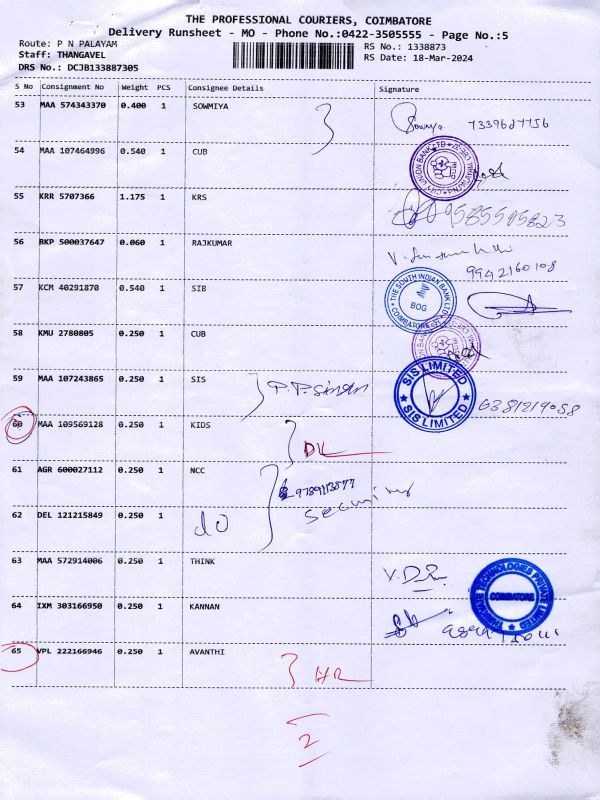 THE PROFESSIONAL COURIERS, COIMBATORE
Delivery Runsheet - MO - Phone No.:0422-3505555 - Page No.:5
Route: P N PALAYAM
Staff: THANGAVEL
DRS No.: DCJB133887305
RS No.: 1338873
RS Date: 18-Mar-2024
S No Consignment No Weight PCS Consignee Details Signature
53 MAA 574343370 0.400 1 SOWMIYA Sowmya 7339627756
54 MAA 107464996 0.540 1 CUB CITY UNION BANK LTD
55 KRR 5707366 1.175 1 KRS 9585595823
56 BKP 500037647 0.060 1 RAJKUMAR 9942160108
57 KCM 40291870 0.540 1 SIB THE SOUTH INDIAN BANK LTD BOG COIMBATORE
58 KMU 2780805 0.250 1 CUB
59 MAA 107243865 0.250 1 SIS SIS LIMITED SIS LIMITED 6381219058
60 MAA 109569128 0.250 1 KIDS DL
61 AGR 600027112 0.250 1 NCC
62 DEL 121215849 0.250 1 do Security
63 MAA 572914006 0.250 1 THINK TECHNOLOGIES PRIVATE LIMITED COIMBATORE
64 IXM 303166950 0.250 1 KANNAN
65 VPL 222166946 0.250 1 AVANTHI HR
2